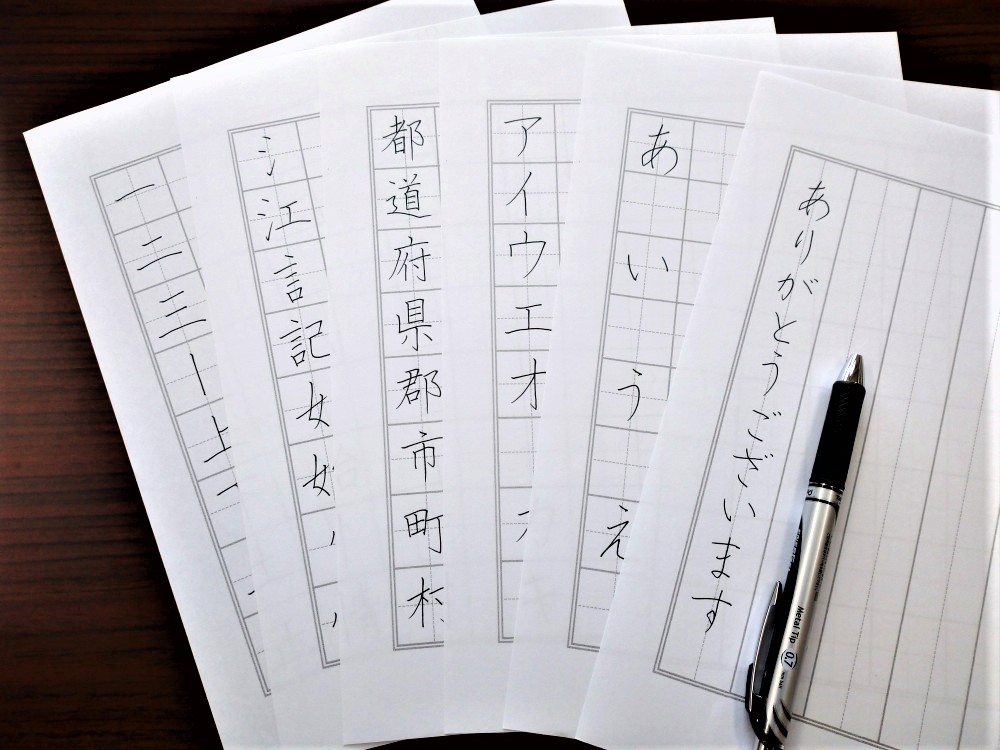 ありがとうございます
あいうえ
アイウエオ
都道府県郡市町村
氵江言記女
一二三丨上
Metal Tip 0.7